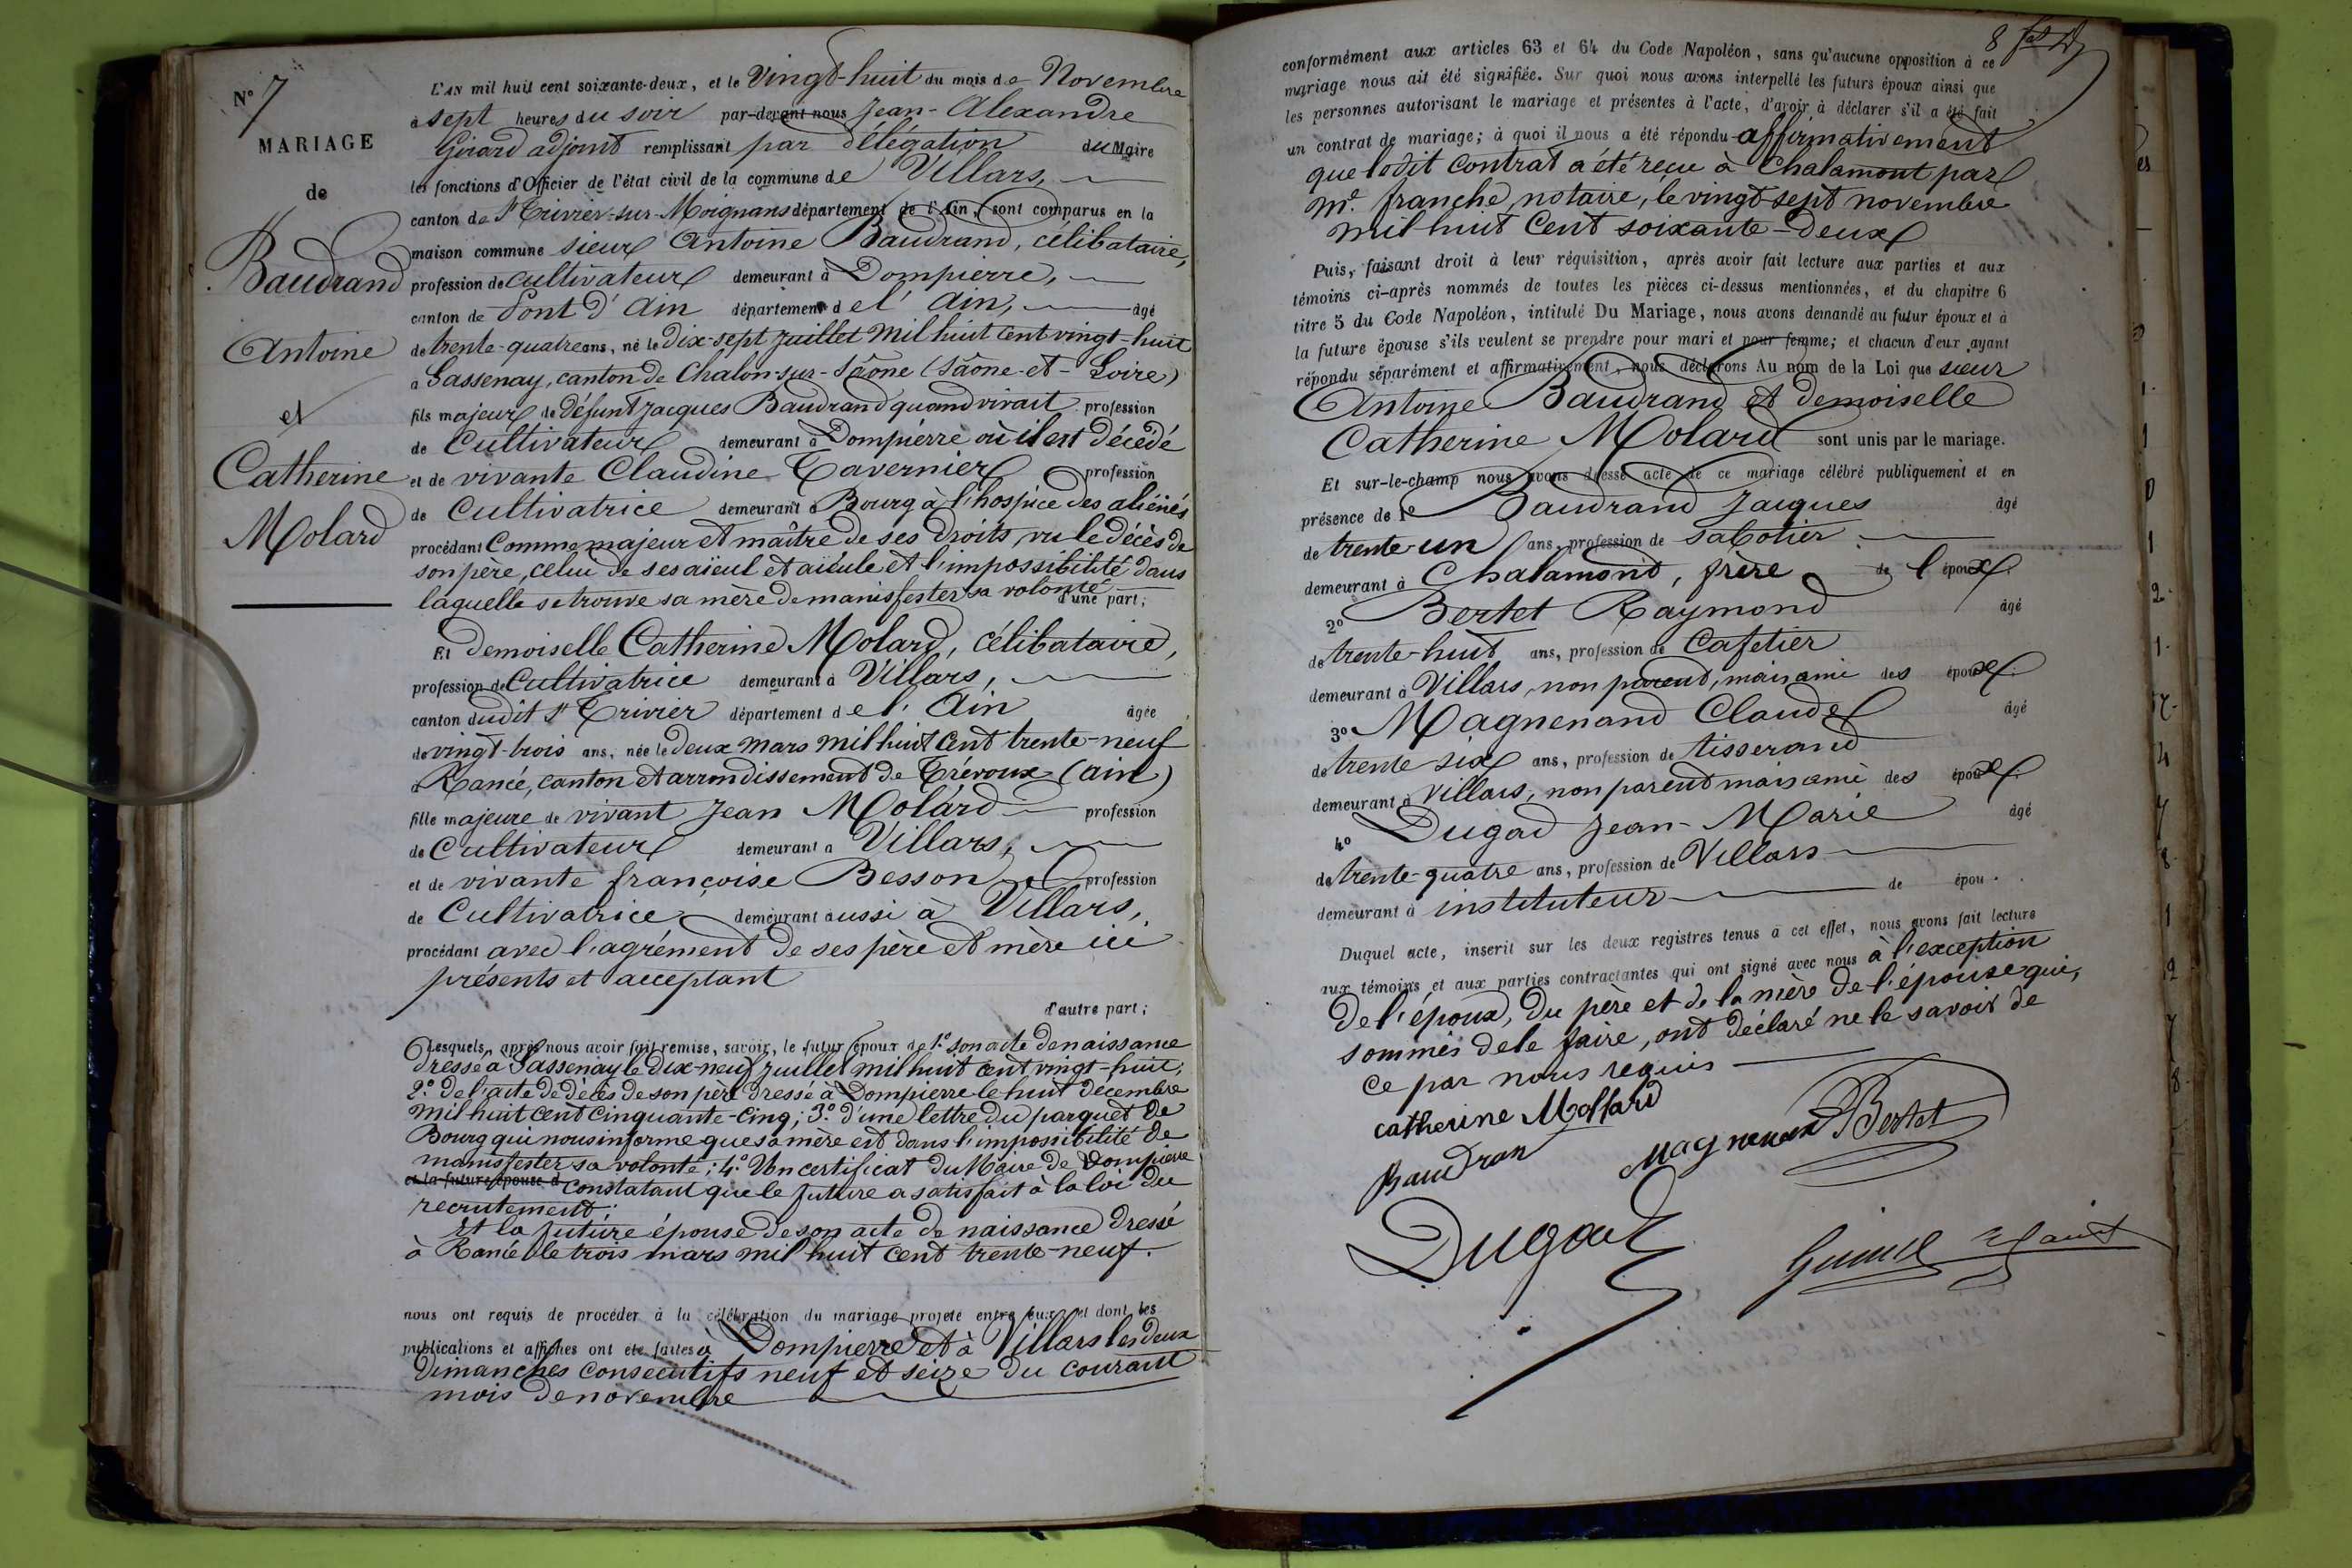 N° 7
MARIAGE
de
Baudrand
Antoine
et
Catherine
Molard
L'AN mil huit cent soixante-deux, et le Vingt-huit du mois de Novembre
à sept heures du soir par-devant nous Jean-Alexandre
Girard adjoint remplissant par délégation du Maire
les fonctions d'Officier de l'état civil de la commune de Villars,
canton de St Trivier-sur-Moignans département de l'Ain, sont comparus en la
maison commune sieur Antoine Baudrand, célibataire,
profession de cultivateur demeurant à Dompierre,
canton de Pont d'Ain département de l'Ain, âgé
de trente-quatre ans, né le Dix-sept Juillet mil huit cent vingt-huit
à Sassenay, canton de Chalon-sur-Saône (Saône-et-Loire)
fils majeur de défunt Jacques Baudrand quand vivait profession
de Cultivateur demeurant à Dompierre où il est décédé
et de vivante Claudine Tavernier profession
de Cultivatrice demeurant à Bourg à l'hospice des aliénés
procédant Comme majeur et maître de ses droits, vu le décès de
son père, celui de ses aïeul et aïeule et l'impossibilité dans
laquelle se trouve sa mère de manisfester sa volonté d'une part;
Et demoiselle Catherine Molard, célibataire,
profession de Cultivatrice demeurant à Villars,
canton dudit St Trivier département de l'Ain âgée
de vingt-trois ans, née le deux mars mil huit cent trente-neuf
à Rancé, canton et arrondissement de Trévoux (ain)
fille majeure de vivant Jean Molard profession
de Cultivateur demeurant à Villars,
et de vivante françoise Besson profession
de Cultivatrice demeurant aussi à Villars,
procédant avec l'agrément de ses père et mère ici
présents et acceptant
d'autre part;
Lesquels, après nous avoir fait remise, savoir, le futur époux de 1° son acte de naissance
dressé à Sassenay le Dix-neuf Juillet mil huit cent vingt-huit;
2° de l'acte de décès de son père dressé à Dompierre le huit décembre
mil huit cent cinquante-cinq; 3° d'une lettre du parquet de
Bourg qui nous informe que sa mère est dans l'impossibilité de
manisfester sa volonté; 4° Un certificat du Maire de Dompierre
et la future épouse d constatant que le future a satisfait à la loi du
recrutement;
Et la future épouse de son acte de naissance dressé
à Rancé le trois mars mil huit cent trente-neuf.
nous ont requis de procéder à la célébration du mariage projeté entre eux, et dont les
publications et affiches ont été faites à Dompierre et à Villars les deux
Dimanches consécutifs neuf et seize du courant
mois de novembre
8
conformément aux articles 63 et 64 du Code Napoléon, sans qu'aucune opposition à ce
mariage nous ait été signifiée. Sur quoi nous avons interpellé les futurs époux ainsi que
les personnes autorisant le mariage et présentes à l'acte, d'avoir à déclarer s'il a été fait
un contrat de mariage; à quoi il nous a été répondu affirmativement
que ledit contrat a été reçu à Chalamont par
Me. franche, notaire, le vingt-sept novembre
mil huit Cent soixante-deux
Puis, faisant droit à leur réquisition, après avoir fait lecture aux parties et aux
témoins ci-après nommés de toutes les pièces ci-dessus mentionnées, et du chapitre 6
titre 5 du Code Napoléon, intitulé Du Mariage, nous avons demandé au futur époux et à
la future épouse s'ils veulent se prendre pour mari et pour femme; et chacun d'eux ayant
répondu séparément et affirmativement, nous déclarons Au nom de la Loi que sieur
Antoine Baudrand et demoiselle
Catherine Molard sont unis par le mariage.
Et sur-le-champ nous avons dressé acte de ce mariage célébré publiquement et en
présence de 1° Baudrand Jacques âgé
de trente-un ans, profession de sabotier
demeurant à Chalamont, frère de l'époux
2° Bertet Raymond âgé
de trente-huit ans, profession de Cafetier
demeurant à Villars, non parent, mais ami des époux
3° Magnenand Claude âgé
de trente six ans, profession de tisserand
demeurant à Villars, non parent mais ami des époux
4° Dugad Jean-Marie âgé
de trente-quatre ans, profession de Villars
demeurant à instituteur de épou
Duquel acte, inscrit sur les deux registres tenus à cet effet, nous avons fait lecture
aux témoins et aux parties contractantes qui ont signé avec nous à l'exception
de l'époux, du père et de la mère de l'épouse qui,
sommés de le faire, ont déclaré ne le savoir de
ce par nous requis
catherine Mollard
Baudran Magnenan Bertet
Dugad